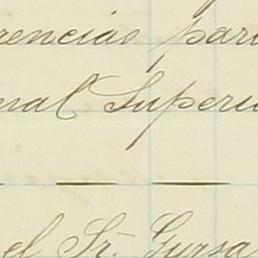 rencias par
nal Superi
el Sr. Gursa